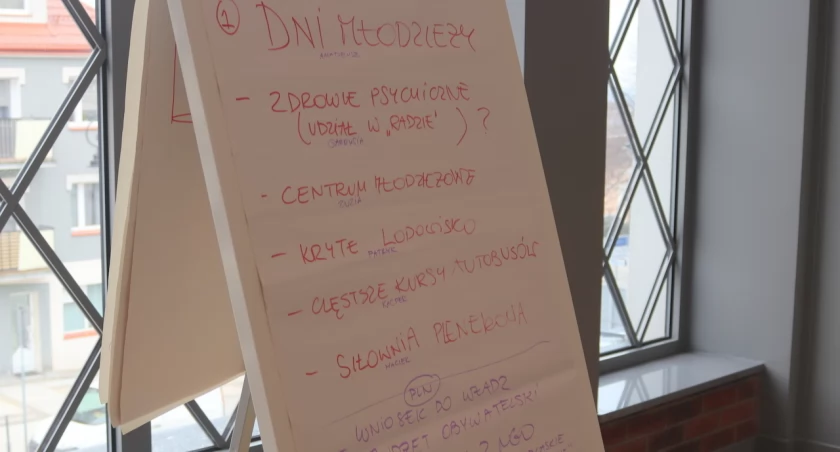 ① DNI MŁODZIEŻY
- ZDROWIE PSYCHICZNE
(UDZIAŁ W „RADZIE" ) ?
- CENTRUM MŁODZIEŻOWE
ZUZIA
- KRYTE LODOWISKO
PATRYK
- CZĘSTSZE KURSY AUTOBUSÓW
KACPER
- SIŁOWNIA PLENEROWA
PLN
WNIOSEK DO WŁADZ
BUDŻET OBYWATELSKI
Z NGO